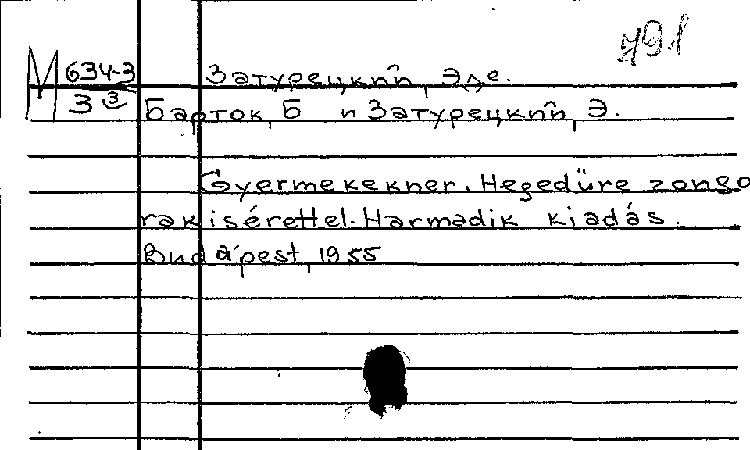 491
М 634-3 Затурецкий, Эде.
3 3 Барток, Б и Затурецкий, Э.
Gyermekekner. Hegedüre zongo
rakisérettel. Harmadik kiadás.
Budápest, 1955